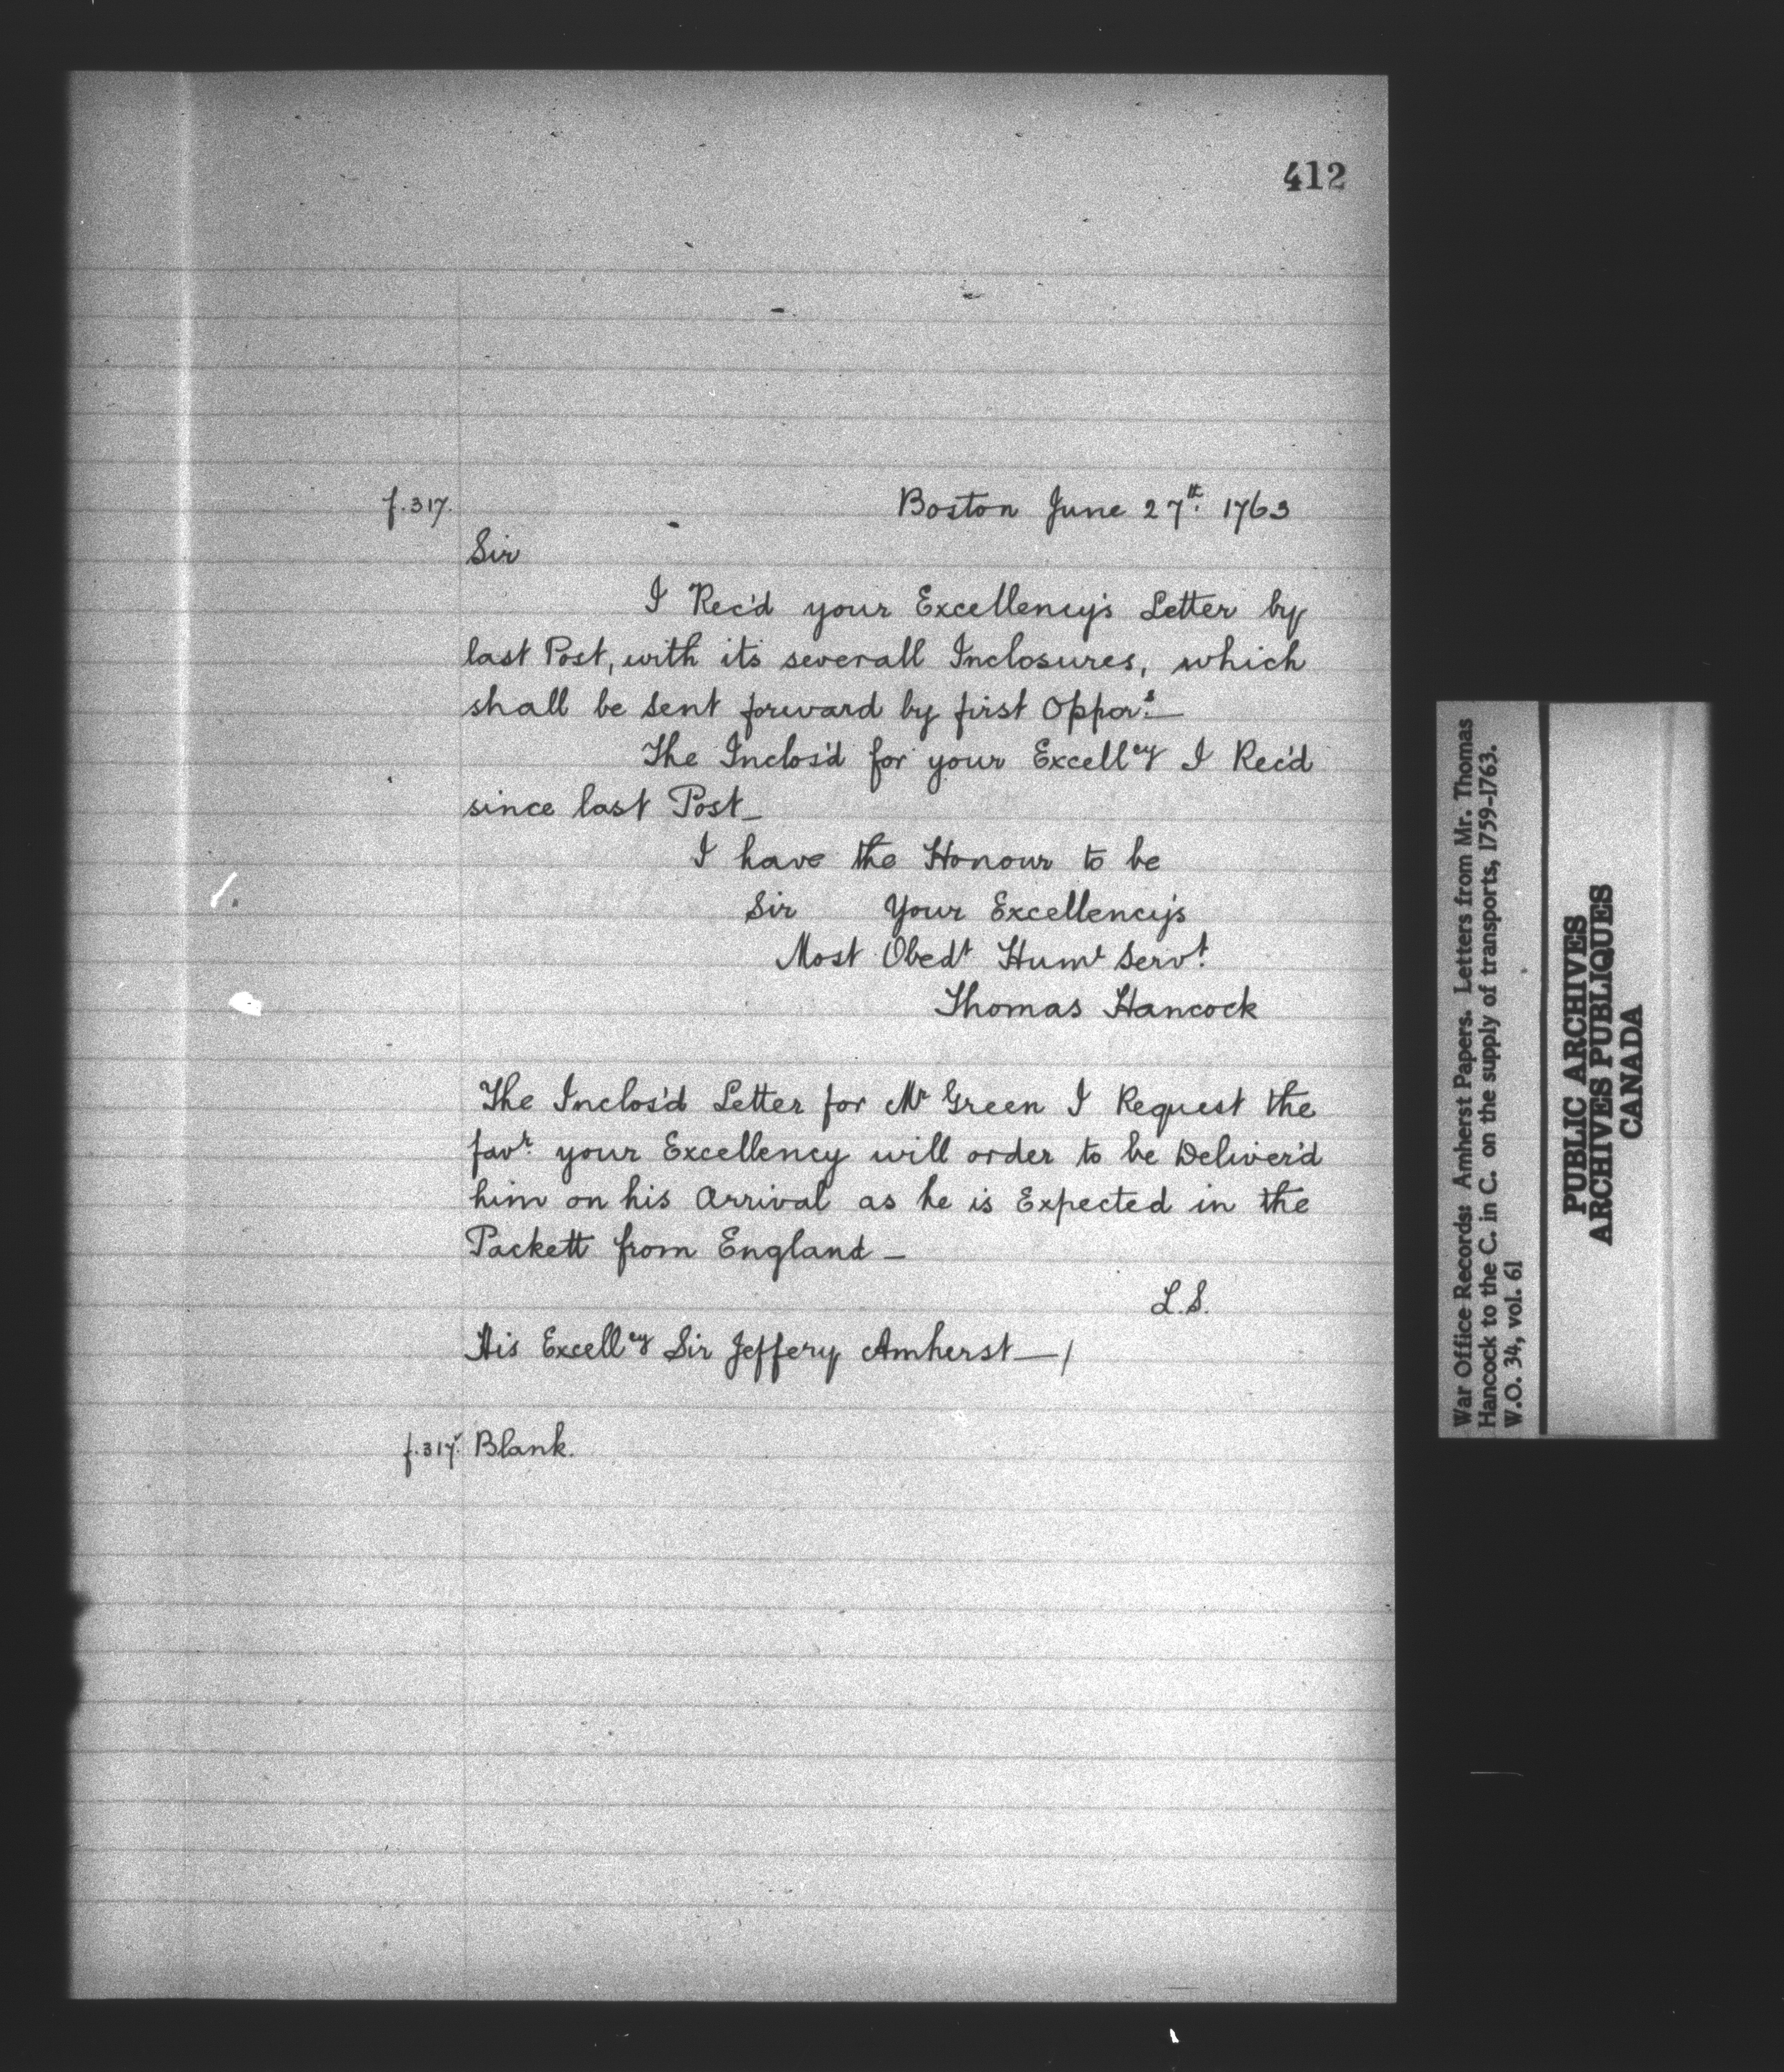 412
f.317. Boston June 27th. 1763
Sir
I Rec'd your Excellency's Letter by
last Post, with its severall Inclosures, which
shall be sent forward by first Oppors.—
The Inclos'd for your Excellcy I Rec'd
since last Post_
I have the Honour to be
Sir Your Excellency's
Most Obedt Humt Servt.
Thomas Hancock
The Inclos'd Letter for Mr Green I Request the
favr. your Excellency will order to be Deliver'd
him on his Arrival as he is Expected in the
Packett from England _
L.S.
His Excellcy Sir Jeffery Amherst—/
f.317v. Blank.
War Office Records: Amherst Papers. Letters from Mr. Thomas
Hancock to the C. in C. on the supply of transports, 1759-1763.
W.O. 34, vol. 61
PUBLIC ARCHIVES
ARCHIVES PUBLIQUES
CANADA